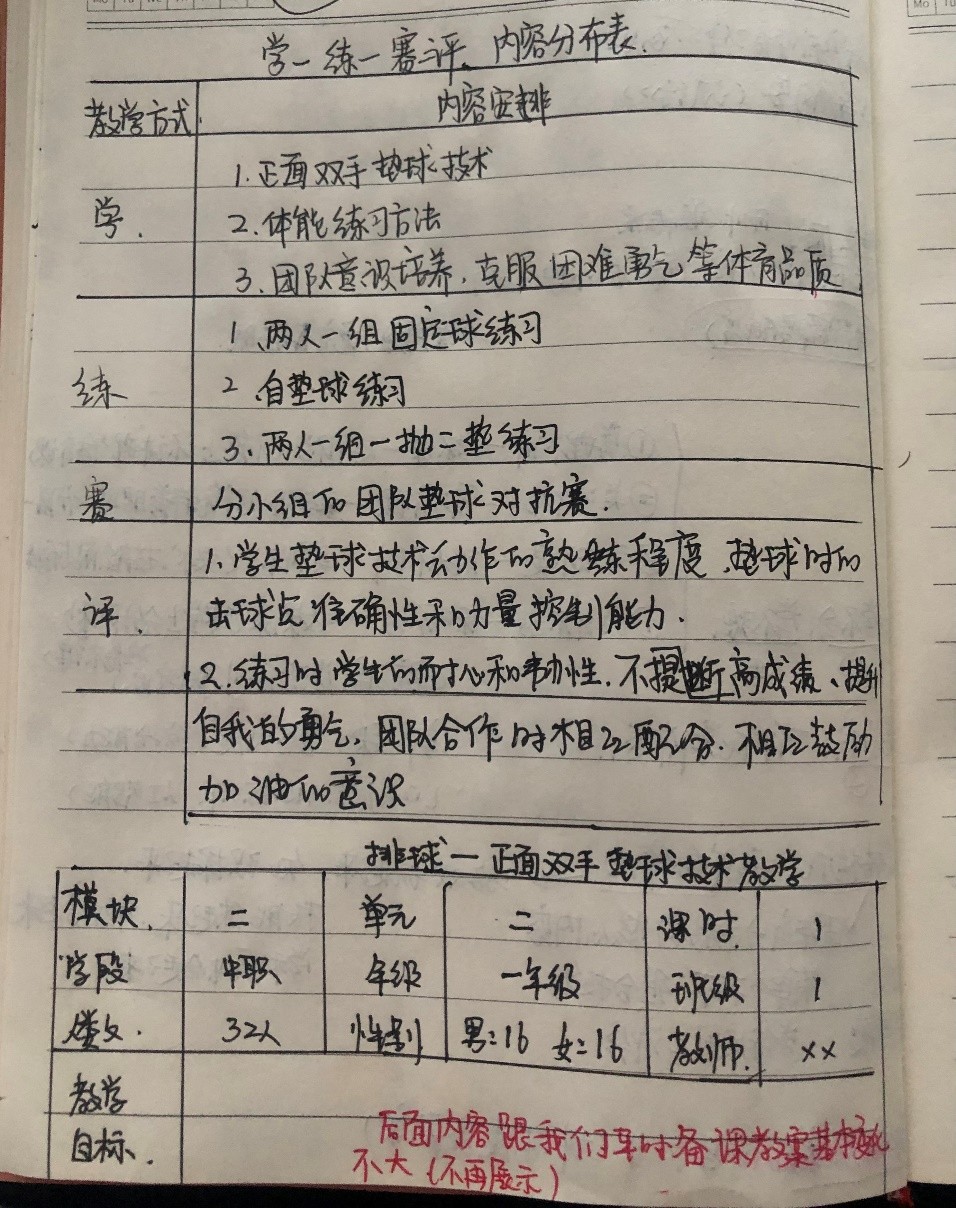 学一练一赛评、内容分布表.
教学方式 内容安排
1.正面双手垫球技术
学. 2.体能练习方法
3.团队意识培养,克服困难勇气等体育品质
1、两人一组固定球练习
练 2、自垫球练习
3、两人一组一抛二垫练习
赛 分小组的团队垫球对抗赛.
1、学生垫球技术动作的熟练程度、垫球时的
评. 击球点准确性和力量控制能力.
2.练习时学生的耐心和韧性,不断提高成绩、提升
自我的勇气,团队合作时相互配合.相互鼓励
加油的意识
排球一正面双手垫球技术教学
模块. 二 单元 二 课时. 1
学段 中职 年级 一年级 班级 1
人数. 32人 性别 男:16 女:16 教师. xx
教学
目标.
后面内容跟我们平时备课教案基本变化
不大(不再展示)